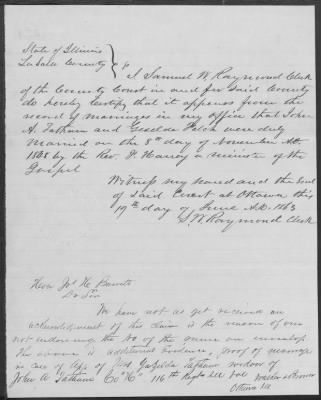 State of Illinois
La Salle County } ss
I Samuel W. Raymond Clerk
of the County Court in and for said County
do hereby Certify that it appears from the
record of marriages in my office that John
A. Tatham and were duly
Married on the 8th day of November AD.
18 by the Rev. a minister of the
Gospel
Witness my hand and the seal
of said Court at Ottawa this
19th day of June A.D. 1863
S. W. Raymond Clerk
Hon Jos H. Barrett
Dr Sir
We have not as yet received an
acknowledgment of this claim is the reason of our
not endorsing the No of the same on envelop
the above is additional evidence, proof of marriage
in case of App of Mrs Tatham widow of
John A Tatham Co "H" 116th Regt Ill Vol
Ottawa Ill